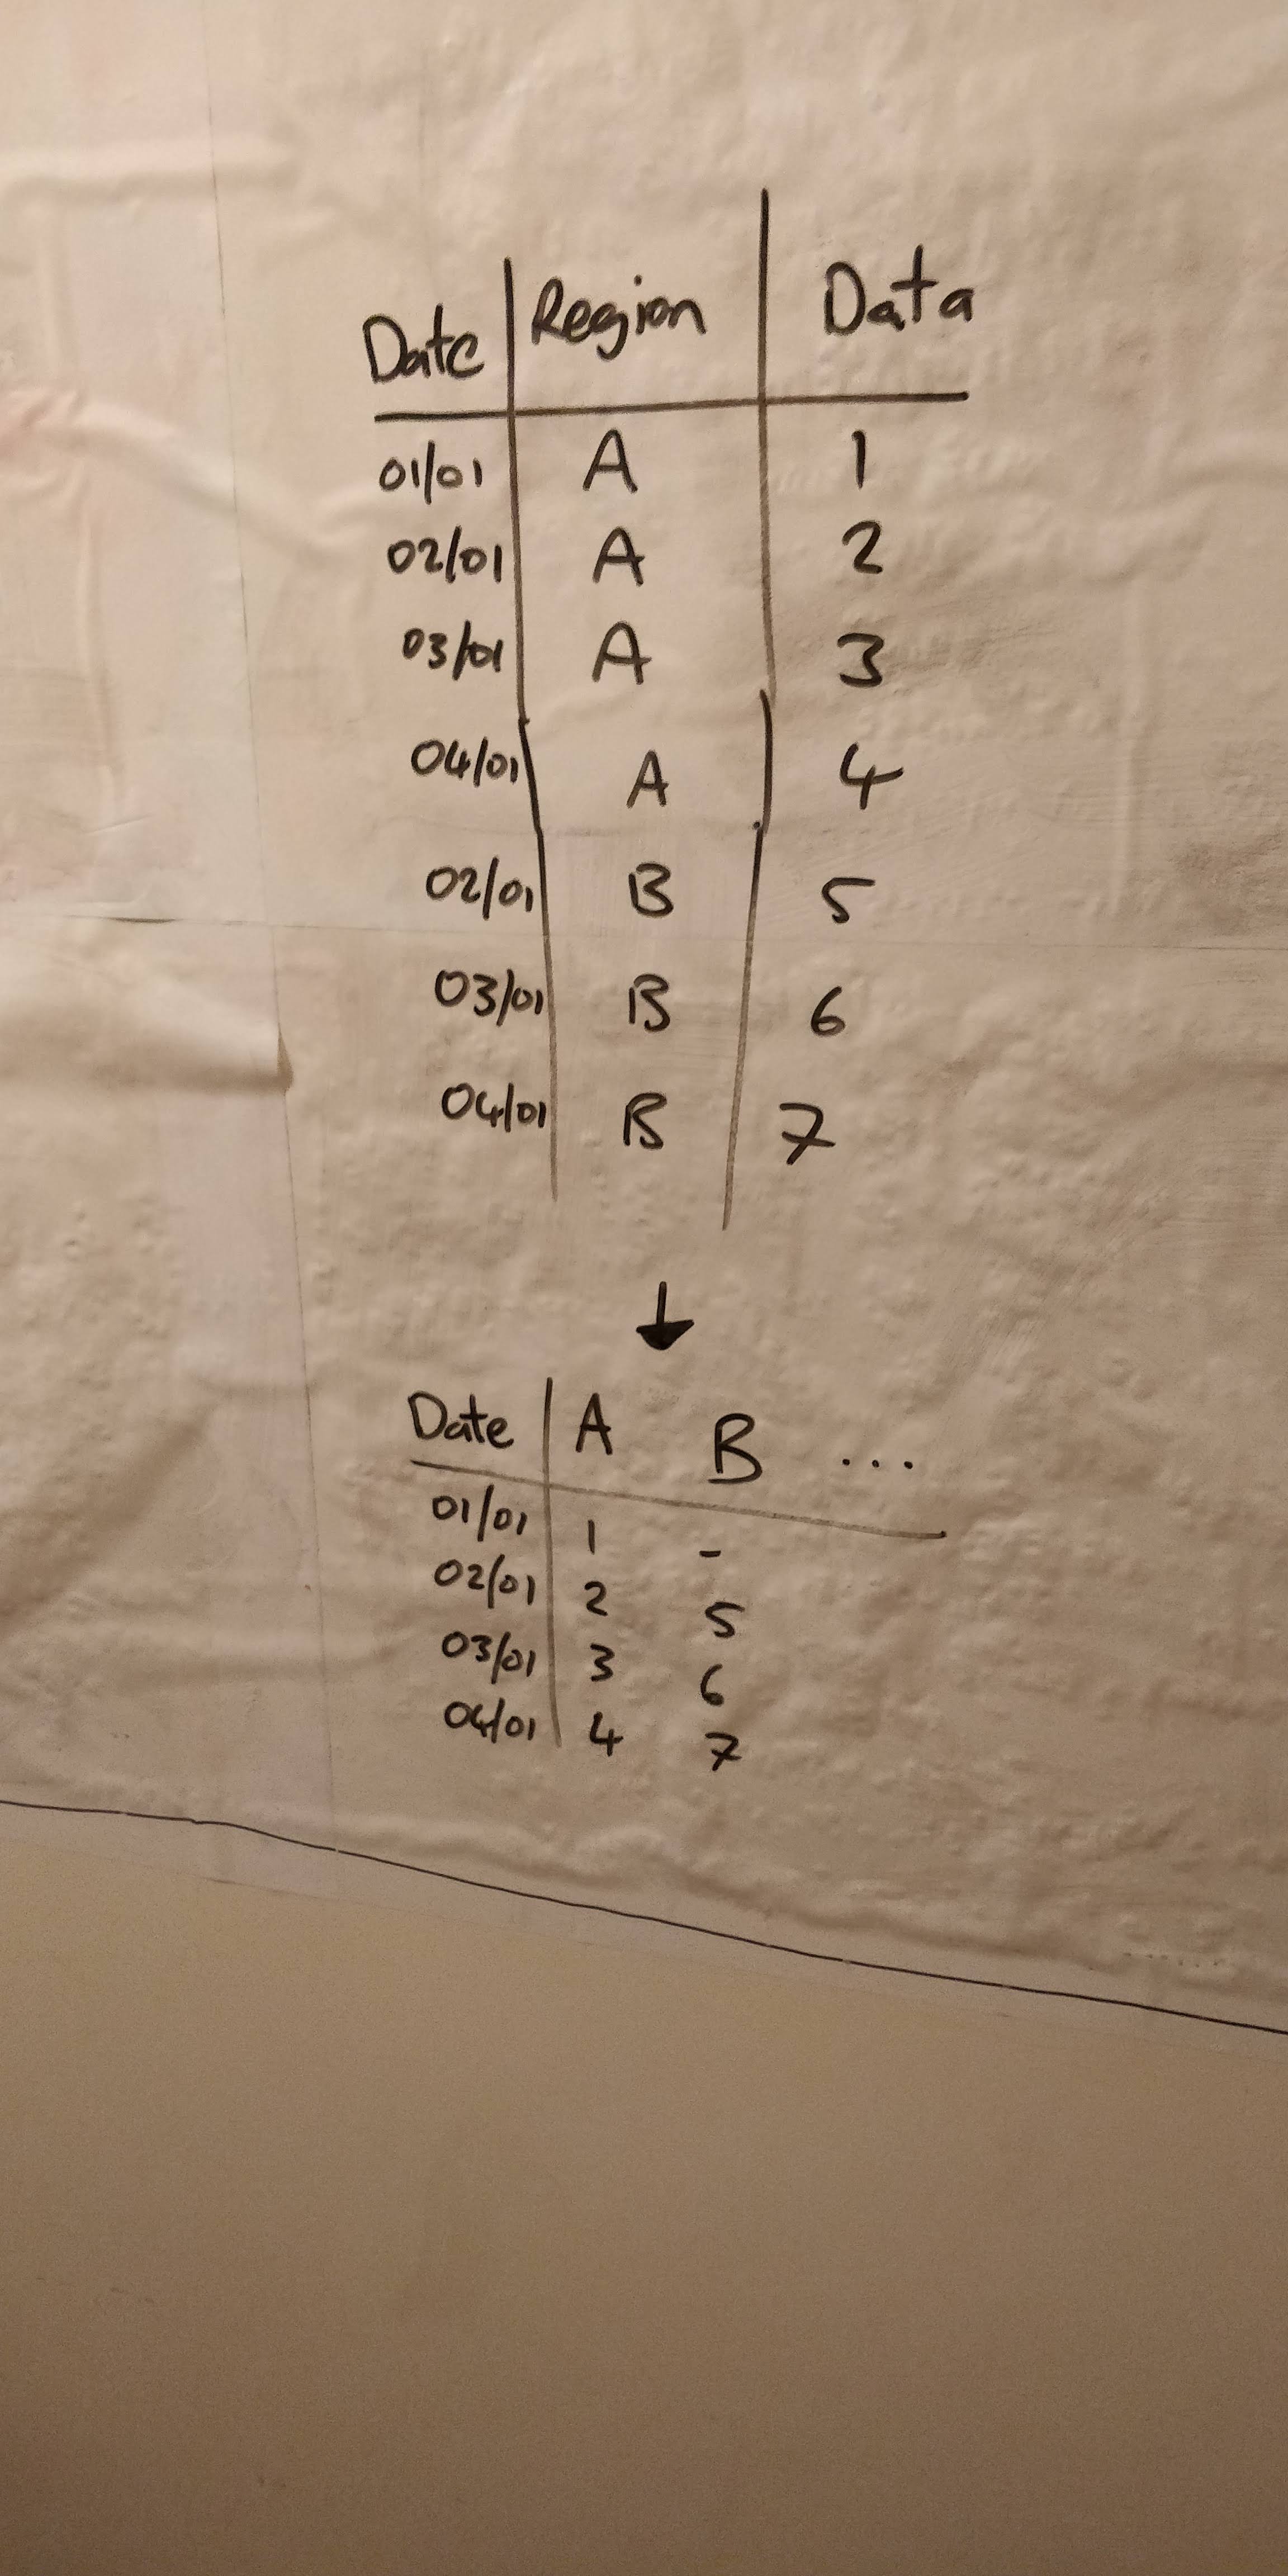 Date Region Data
01/01 A 1
02/01 A 2
03/01 A 3
04/01 A 4
02/01 B 5
03/01 B 6
04/01 B 7
↓
Date A B ...
01/01 1 -
02/01 2 5
03/01 3 6
04/01 4 7